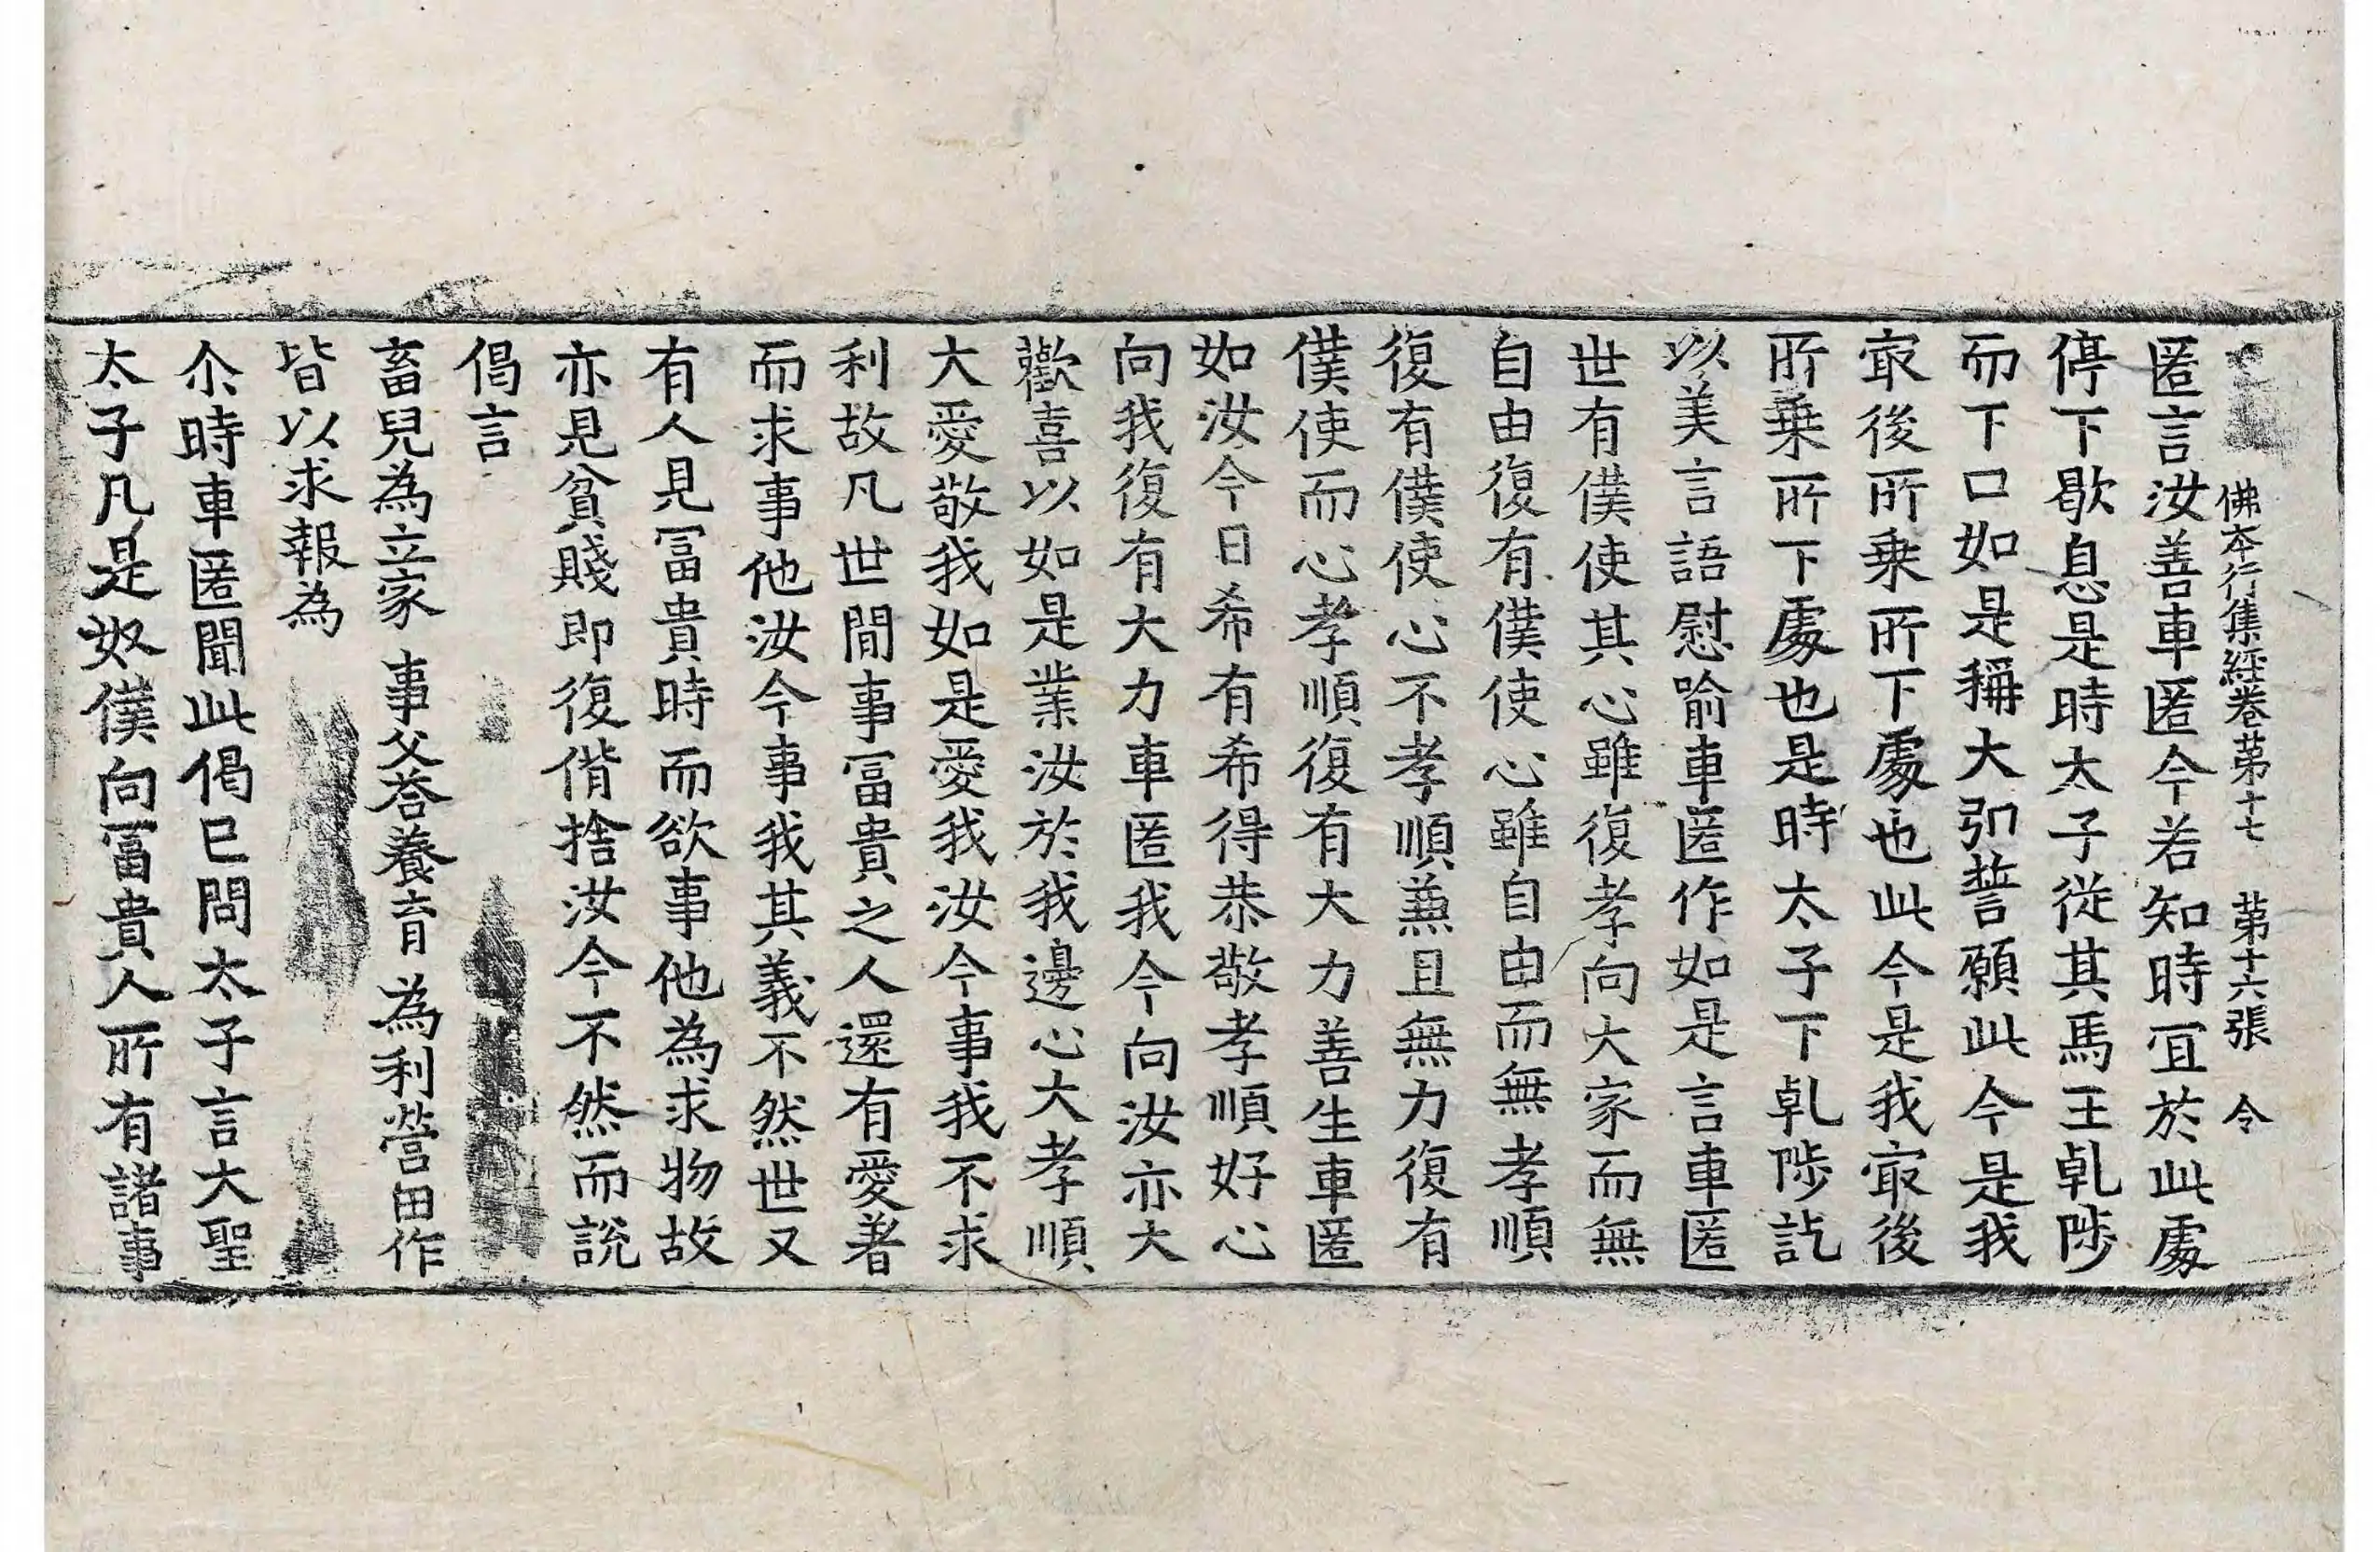 佛本行集經卷苐十七 苐十六張 令
匿言汝善車匿今若知時冝於此處
停下歇息是時太子從其馬王乹陟
而下口如是稱大引誓願此今是我
㝡後所乗所下處也此今是我㝡後
所乗所下處也是時太子下乹陟訖
以美言語慰喻車匿作如是言車匿
世有僕使其心雖復孝向大家而無
自由復有僕使心雖自由而無孝順
復有僕使心不孝順兼且無力復有
僕使而心孝順復有大力善生車匿
如汝今日希有希得恭敬孝順好心
向我復有大力車匿我今向汝亦大
歡喜以如是業汝於我邊心大孝順
大愛敬我如是愛我汝今事我不求
利故凡世間事冨貴之人還有愛著
而求事他汝今事我其義不然世又
有人見冨貴時而欲事他為求物故
亦見貧賤即復偝捨汝今不然而說
偈言
畜兒為立家 事父荅養育 為利營田作
皆以求報為
尒時車匿聞此偈已問太子言大聖
太子凡是奴僕向冨貴人所有諸事